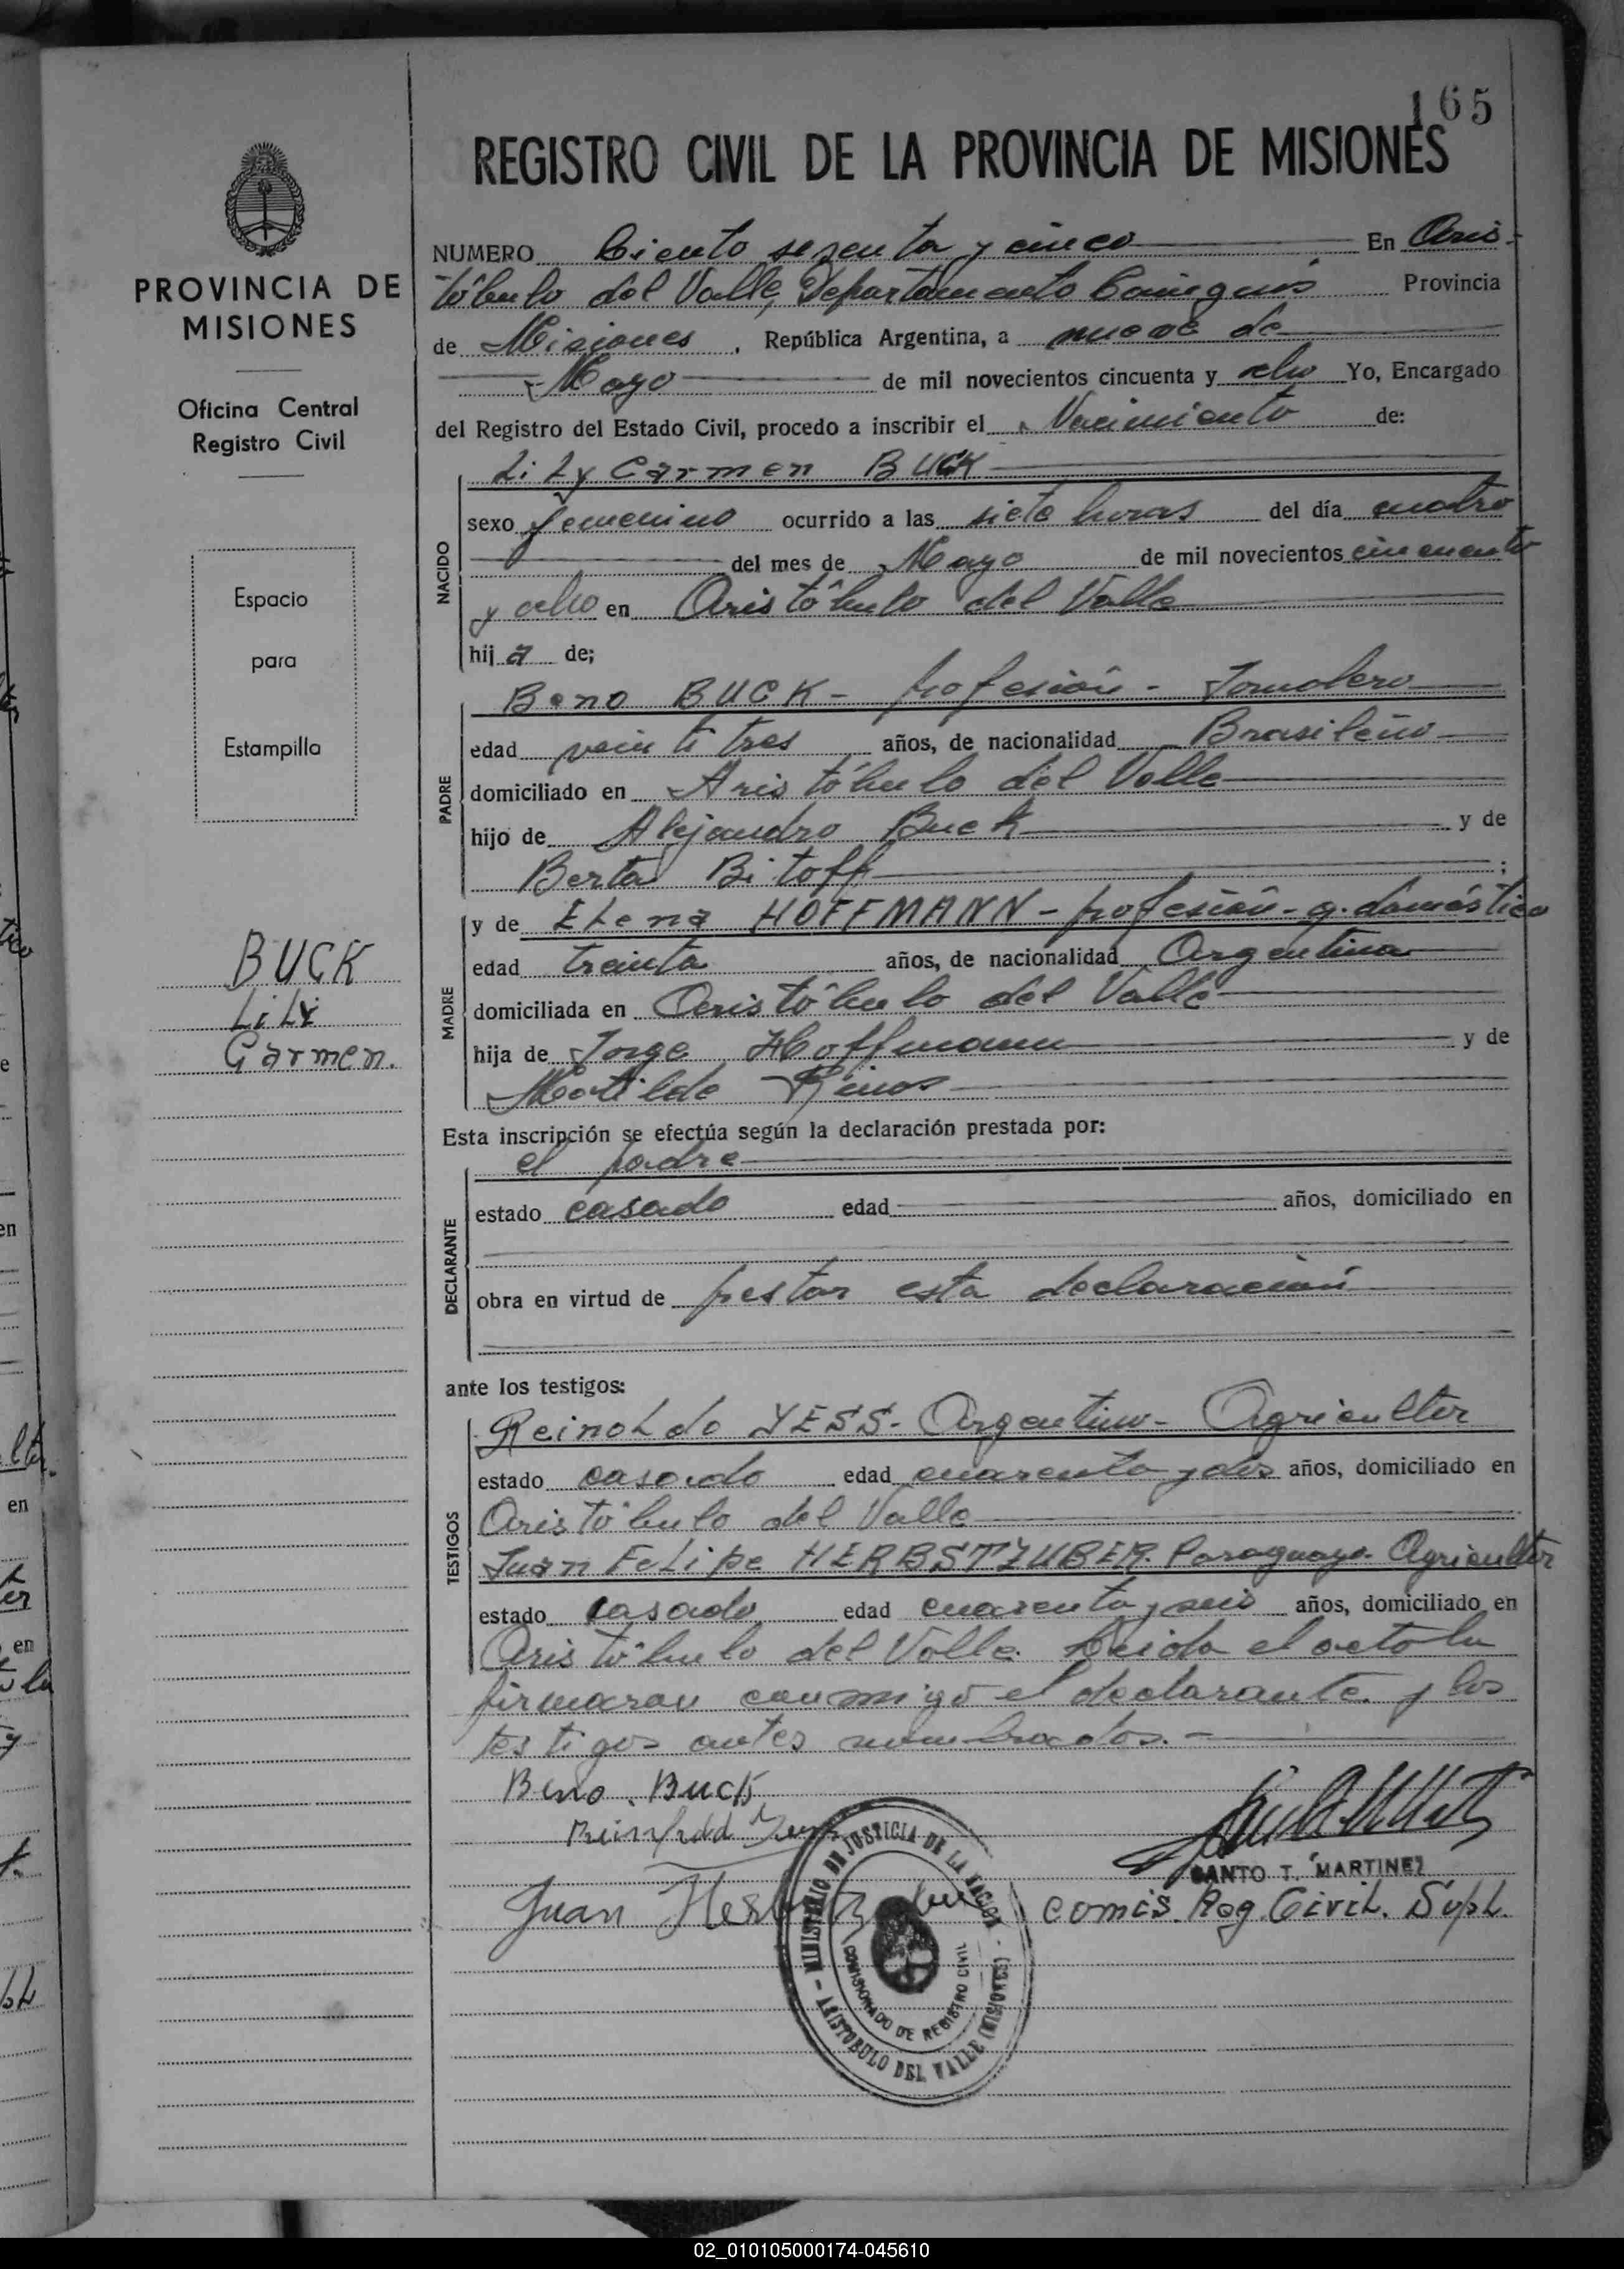 165
REGISTRO CIVIL DE LA PROVINCIA DE MISIONES
PROVINCIA DE
MISIONES
Oficina Central
Registro Civil
Espacio
para
Estampilla
BUCK
LiLY
Carmen.
NUMERO Ciento sesenta y cinco En Aris-
tóbulo del Valle, Departamento Cainguás Provincia
de Misiones, República Argentina, a nueve de
Mayo de mil novecientos cincuenta y ocho Yo, Encargado
del Registro del Estado Civil, procedo a inscribir el Nacimiento de:
LiLy Carmen BUCK
NACIDO
sexo femenino ocurrido a las siete horas del día cuatro
del mes de Mayo de mil novecientos cincuenta
y ocho en Aristóbulo del Valle
hija de;
PADRE
Beno BUCK - profesión - Jornalero
edad veintitres años, de nacionalidad Brasileño
domiciliado en Aristóbulo del Valle
hijo de Alejandro Buck y de
Berta Bitoff;
MADRE
y de ELena HOFFMANN - profesión - q. doméstico
edad treinta años, de nacionalidad Argentina
domiciliada en Aristóbulo del Valle
hija de Jorge Hoffmann y de
Matilde
Esta inscripción se efectúa según la declaración prestada por:
DECLARANTE
el padre
estado casado edad años, domiciliado en
obra en virtud de prestar esta declaración
ante los testigos:
TESTIGOS
ReinoLdo YESS - Argentino - Agricultor
estado casado edad cuarenta y dos años, domiciliado en
Aristóbulo del Valle
Juan FeLipe HERBSTZUBER. Paraguayo. Agricultor
estado casado edad cuarenta y seis años, domiciliado en
Aristóbulo del Valle. Leida el acta la
firmaron conmigo el declarante y los
testigos antes nombrados. -
Beno Buck
SANTO T. MARTINEZ
Juan
comis. Reg Civil. Supl.
MINISTERIO DE JUSTICIA DE LA NACION - ARISTOBULO DEL VALLE (MISIONES) -
COMISIONADO DE REGISTRO CIVIL
02_010105000174-045610